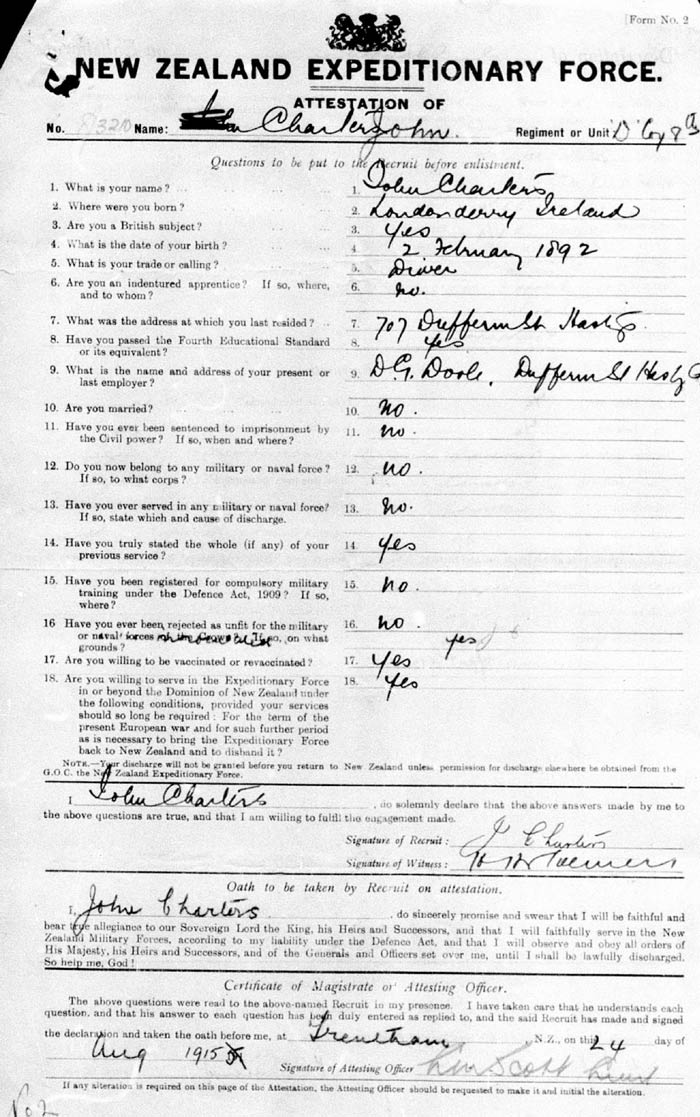 [Form No. 2
NEW ZEALAND EXPEDITIONARY FORCE.
ATTESTATION OF
No. Name: Charters John. Regiment or Unit 'D' Coy 8th
Questions to be put to the Recruit before enlistment.
1. What is your name? 1. John Charters
2. Where were you born? 2. Londonderry Ireland
3. Are you a British subject? 3. Yes
4. What is the date of your birth? 4. 2 February 1892
5. What is your trade or calling? 5. Driver
6. Are you an indentured apprentice? If so, where, 6. no.
and to whom?
7. What was the address at which you last resided? 7. 707 Dufferin St Hastings.
8. Have you passed the Fourth Educational Standard 8. Yes
or its equivalent?
9. What is the name and address of your present or 9. D.G. Dufferin St
last employer?
10. Are you married? 10. no.
11. Have you ever been sentenced to imprisonment by 11. no.
the Civil power? If so, when and where?
12. Do you now belong to any military or naval force? 12. no.
If so, to what corps?
13. Have you ever served in any military or naval force? 13. no.
If so, state which and cause of discharge.
14. Have you truly stated the whole (if any) of your 14. Yes
previous service?
15. Have you been registered for compulsory military 15. no.
training under the Defence Act, 1909? If so,
where?
16 Have you ever been rejected as unfit for the military 16. no.
or naval forces If so, on what yes
grounds?
17. Are you willing to be vaccinated or revaccinated? 17. Yes
18. Are you willing to serve in the Expeditionary Force 18. Yes
in or beyond the Dominion of New Zealand under
the following conditions, provided your services
should so long be required: For the term of the
present European war and for such further period
as is necessary to bring the Expeditionary Force
back to New Zealand and to disband it?
NOTE.—Your discharge will not be granted before you return to New Zealand unless permission for discharge elsewhere be obtained from the
G.O.C. the New Zealand Expeditionary Force.
I John Charters, do solemnly declare that the above answers made by me to
the above questions are true, and that I am willing to fulfil the engagement made.
Signature of Recruit: J Charters
Signature of Witness:
Oath to be taken by Recruit on attestation.
I, John Charters, do sincerely promise and swear that I will be faithful and
bear true allegiance to our Sovereign Lord the King, his Heirs and Successors, and that I will faithfully serve in the New
Zealand Military Forces, according to my liability under the Defence Act, and that I will observe and obey all orders of
His Majesty, his Heirs and Successors, and of the Generals and Officers set over me, until I shall be lawfully discharged.
So help me, God!
Certificate of Magistrate or Attesting Officer.
The above questions were read to the above-named Recruit in my presence. I have taken care that he understands each
question, and that his answer to each question has been duly entered as replied to, and the said Recruit has made and signed
the declaration and taken the oath before me, at Trentham, N.Z., on this 24 day of
Aug 1915
Signature of Attesting Officer Scott
If any alteration is required on this page of the Attestation, the Attesting Officer should be requested to make it and initial the alteration.
No 2